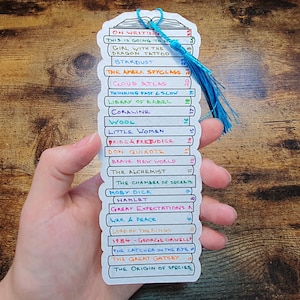 ON WRITING
THIS IS GOING TO
GIRL WITH THE
DRAGON TATTOO
STARDUST
THE AMBER SPYGLASS
CLOUD ATLAS
THINKING FAST & SLOW
LIBRARY OF BABEL
CORALINE
WOOL
LITTLE WOMEN
PRIDE & PREJUDICE
DON QUIXOTE
BRAVE NEW WORLD
THE ALCHEMIST
THE CHAMBER OF SECRETS
MOBY DICK
HAMLET
GREAT EXPECTATIONS
WAR & PEACE
LORD OF THE RINGS
1984 - GEORGE ORWELL
THE CATCHER IN THE RYE
THE GREAT GATSBY
THE ORIGIN OF SPECIES